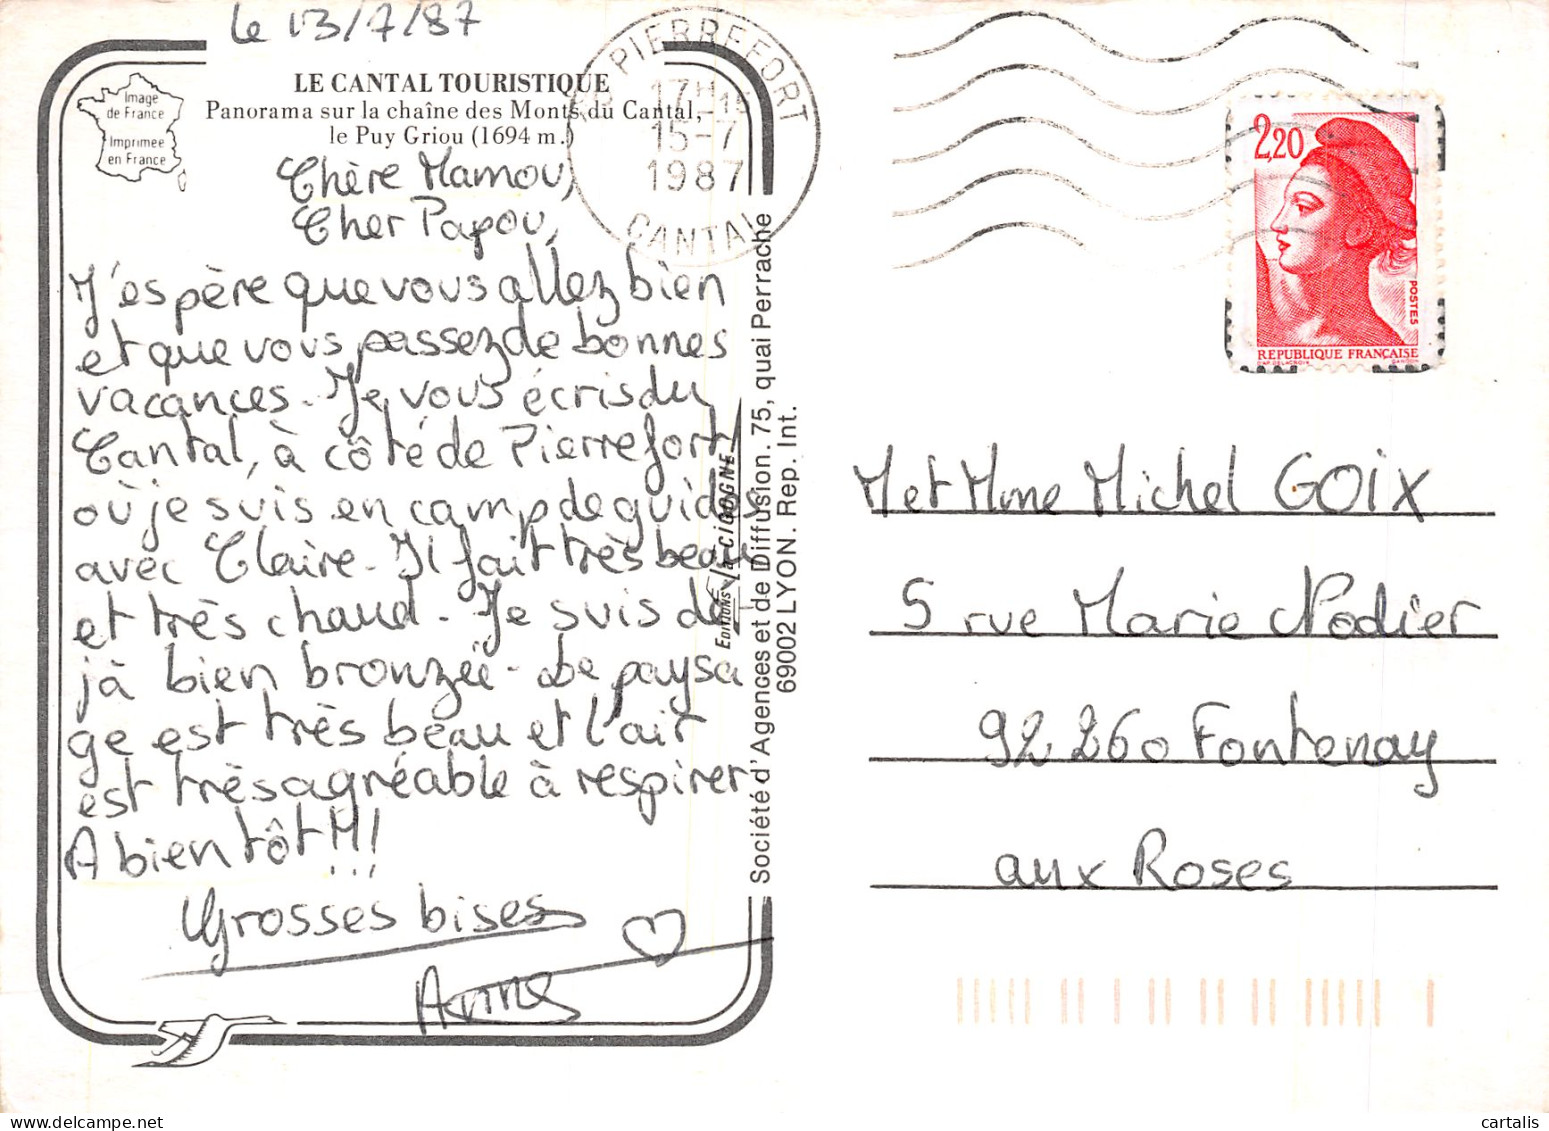 le 13/7/87
LE CANTAL TOURISTIQUE
Panorama sur la chaîne des Monts du Cantal,
le Puy Griou (1694 m.)
Image
de France
Imprimée
en France
Chère Mamou,
Cher Papou,
J'espère que vous allez bien
et que vous passez de bonnes
vacances. Je vous écris du
Cantal, à côté de Pierrefort
où je suis en camp de guides
avec Claire. Il fait très beau
et très chaud. Je suis dé
jà bien bronzée. Le paysa
ge est très beau et l'air
est très agréable à respirer
A bientôt!!!
Grosses bises
Anne
PIERREFORT
17H15
15-7
1987
CANTAL
Editions La CIGOGNE
Société d'Agences et de Diffusion. 75, quai Perrache
69002 LYON. Rep. Int.
2,20
POSTES
REPUBLIQUE FRANÇAISE
M et Mme Michel GOIX
5 rue Marie Nodier
92260 Fontenay
aux Roses
cartalis